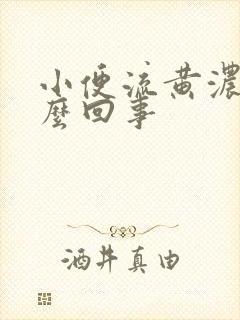 小便流黄濃
麼回事
酒井真由